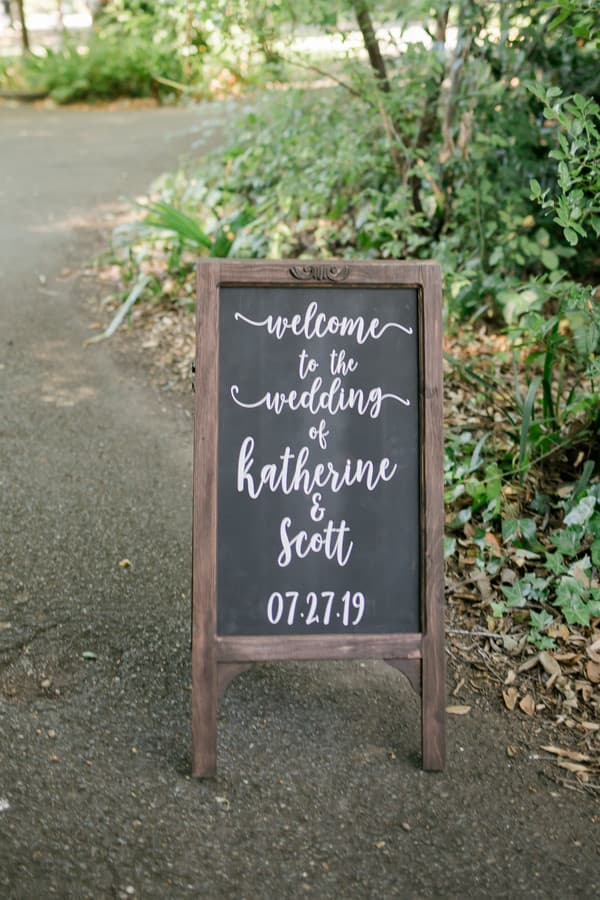 welcome
to the
wedding
of
Katherine
&
Scott
07.27.19